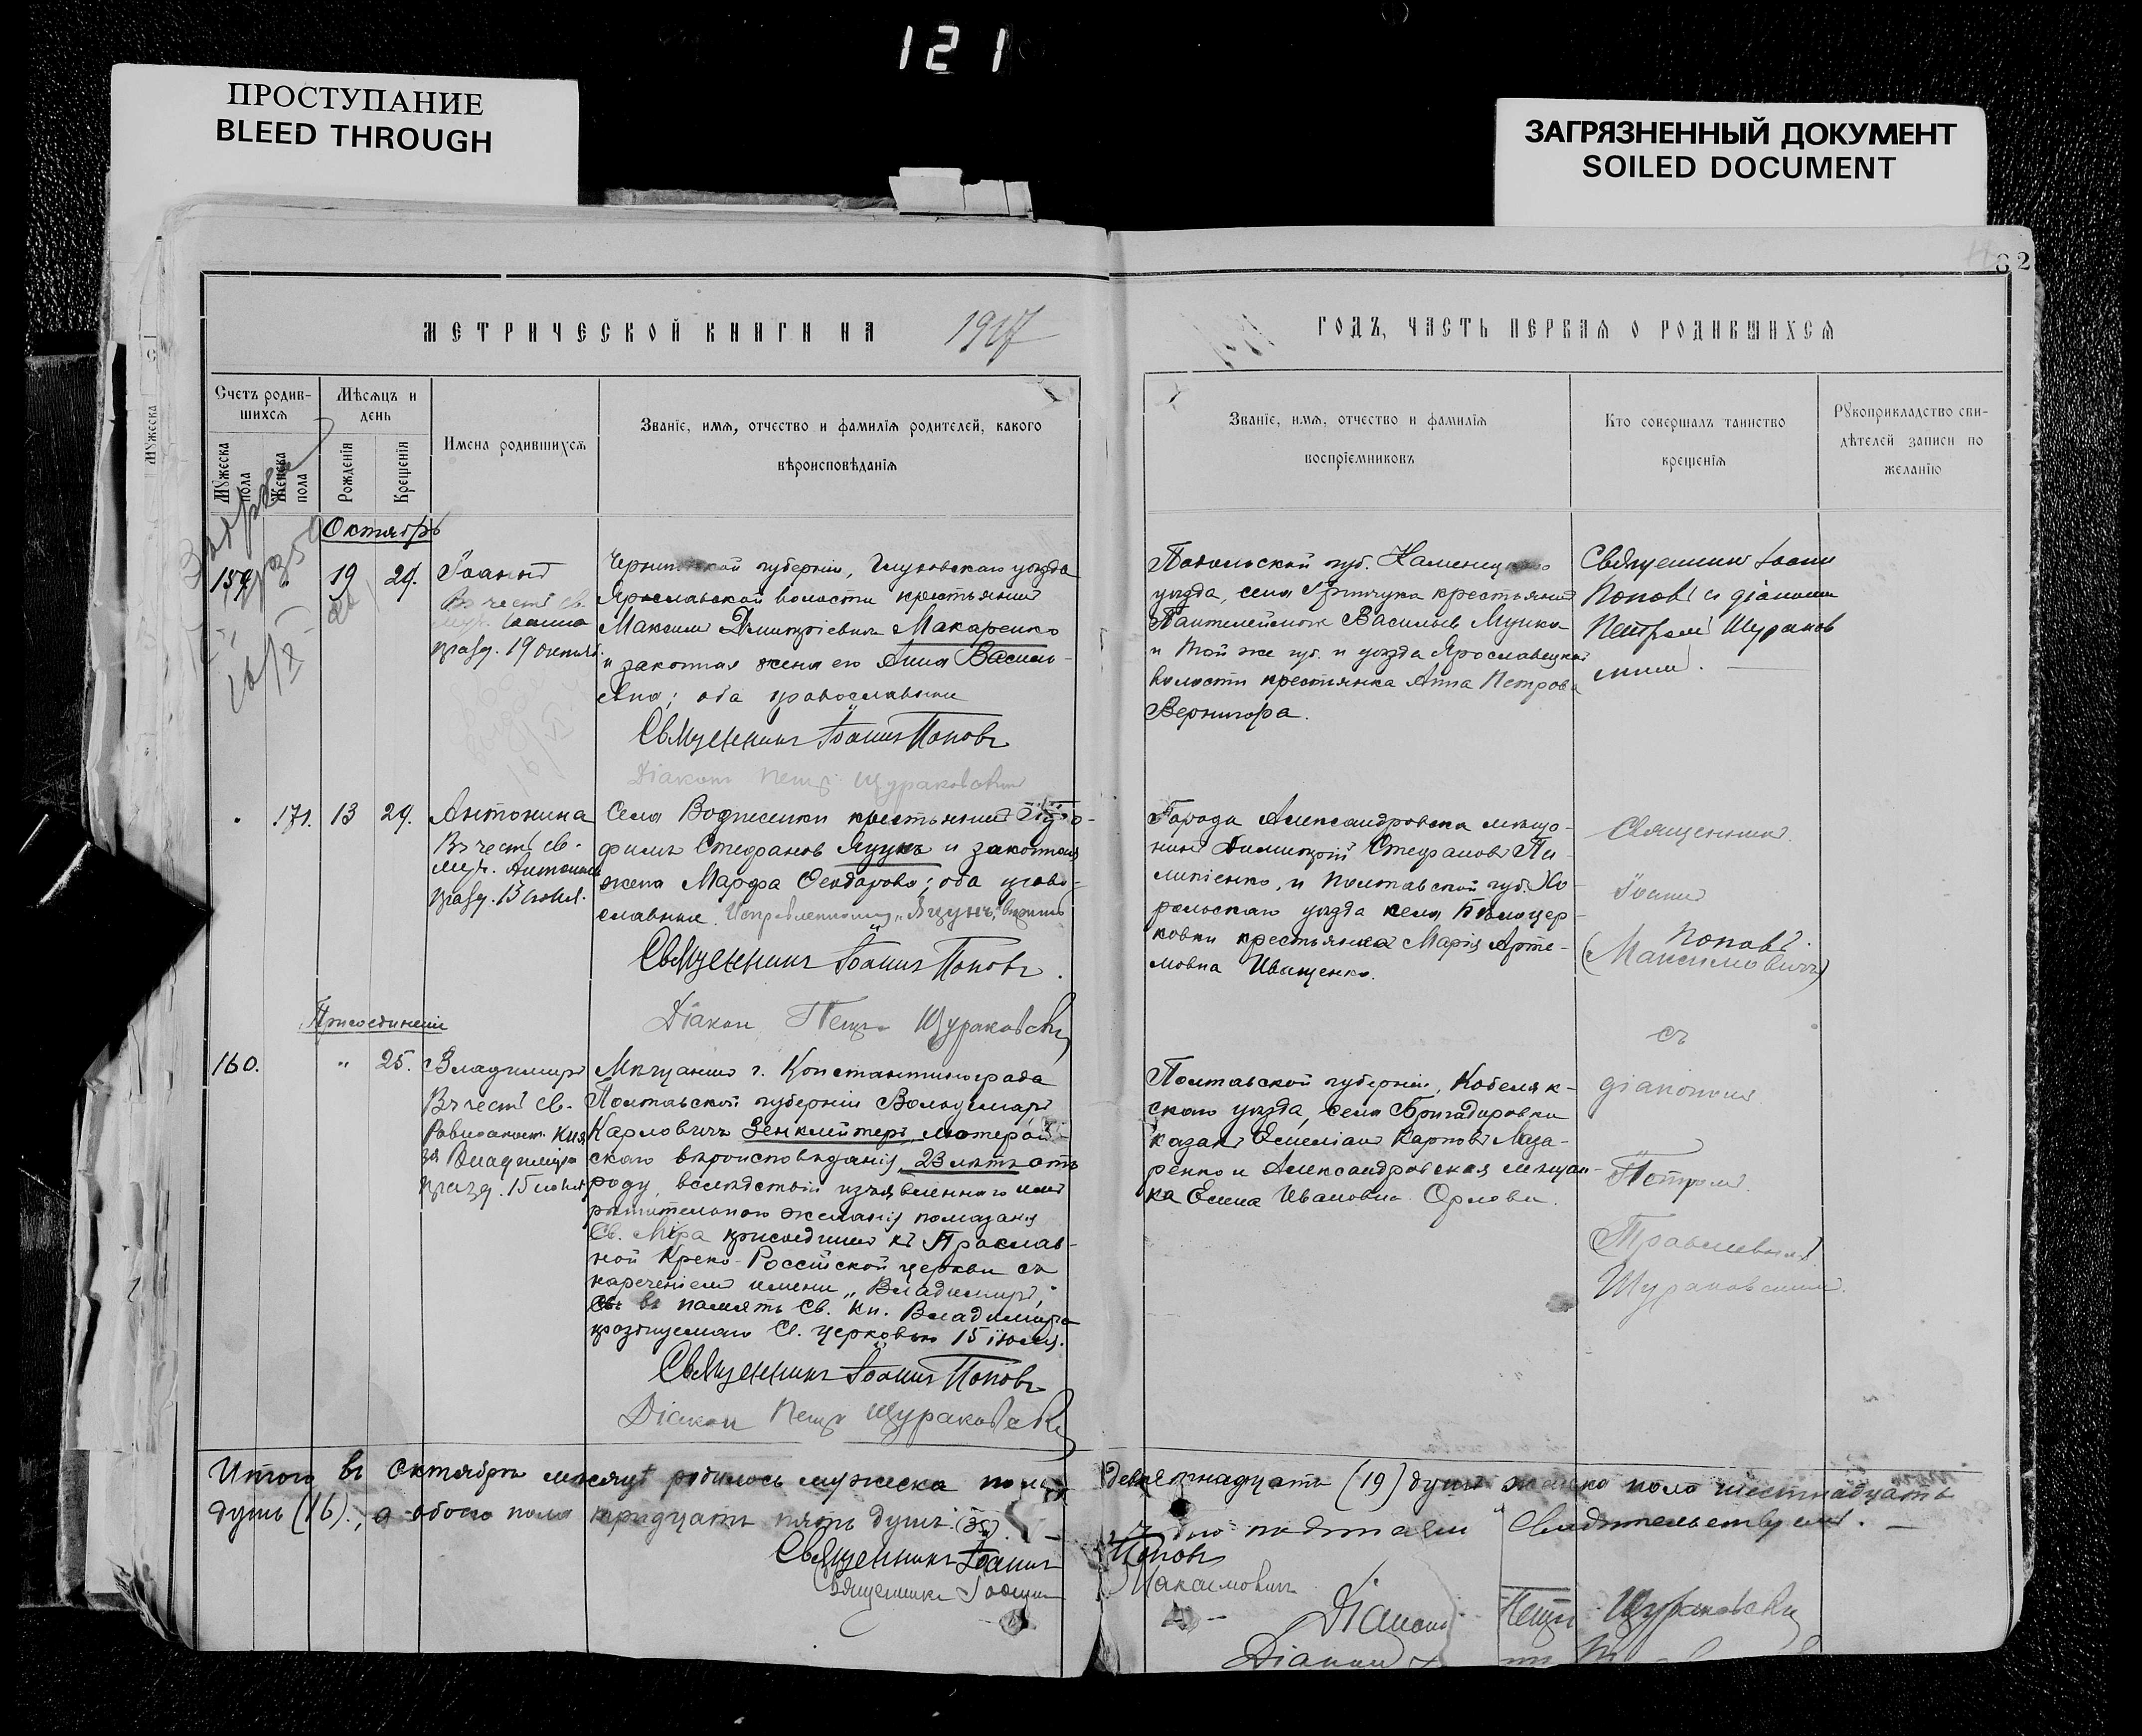 121
ПРОСТУПАНИЕ
BLEED THROUGH
ЗАГРЯЗНЕННЫЙ ДОКУМЕНТ
SOILED DOCUMENT
82
МЕТРИЧЕСКОЙ КНИГИ НА 1917
ГОДЪ, ЧАСТЬ ПЕРВАЯ О РОДИВШИХСЯ
Счетъ родив-
шихся
Мѣсяцъ и
день
Имена родившихся
Званіе, имя, отчество и фамилія родителей, какого
вѣроисповѣданія
Мужеска
пола
Женска
пола
Рожденія
Крещенія
Званіе, имя, отчество и фамилія
воспріемниковъ
Кто совершалъ таинство
крещенія
Рукоприкладство сви-
дѣтелей записи по
желанію
Октябрь
159. 19 29.
Іоаннъ
Въ честь св.
празд. 19 октяб.
губерніи, Глуховскаго уѣзда
Ярославской волости крестьянинъ
Максимъ Димитріевичъ Макаренко
и законная жена его Анна Василь-
евна; оба православные
Священникъ Іоаннъ Поповъ
Діаконъ Петръ Щураковскій
Подольской губ.
уѣзда, села крестьянинъ
Пантелеймонъ Васильевъ
и той же губ. и уѣзда Ярославецкой
волости крестьянка Анна Петрова
Вернигора.
Священникъ Іоаннъ
Поповъ и діакономъ
Петромъ Щураков
скимъ.
171. 13 29.
Антонина
Въ честь св.
муч. Антонины
празд. 13 іюня.
Села Вознесенки крестьянинъ
филъ Стефановъ Яцунъ и законная
жена Марфа Ѳеодорова; оба право-
славные. Исправленному „Яцунъ" вѣрить
Священникъ Іоаннъ Поповъ.
Діакон Петръ Щураковскій
Города Александровска мѣща-
нинъ Димитрій Стефановъ Пи-
липенко, и Полтавской губ. Хо-
рольскаго уѣзда села Бѣлоцер-
ковки крестьянка Марія Арте-
мовна Иващенко.
Священникъ
Іоаннъ
Поповъ.
(Максимовичъ)
съ
діакономъ
Петромъ
Щураковскимъ.
Присоединеніе
160. " 25.
Владимиръ
Въ честь св.
Равноапост. Кня
зя Владиміра
празд. 15 іюля
Мѣщанинъ г. Константинограда
Полтавской губерніи Вольдемаръ
Карловичъ Зенкмейтеръ, лютеран-
скаго вѣроисповѣданія, 23 лѣтъ отъ
роду, вслѣдствіи изъявленнаго имъ
рѣшительнаго желанія помазанія
Св. Мѵра присоединенъ къ Православ-
ной Греко-Россійской церкви съ
нареченіемъ имени „Владимиръ",
въ память Св. Кн. Владимира
празднуемаго Св. церковью 15 іюля.
Священникъ Іоаннъ Поповъ
Діакон Петръ Щураковскій
Полтавской губерніи, Кобеляк-
скаго уѣзда, села Бригадировки
казакъ Емеліанъ Карповъ Маза-
ренко и Александровская мѣщан-
ка Елена Ивановна Орлова.
Итого въ Октябрѣ мѣсяцѣ родилось мужеска пола девятнадцать (19) душъ женска пола шестнадцать
душъ (16)., а обоего пола тридцать пять душъ (35). – свидѣтельствуемъ. –
Священникъ Іоаннъ Поповъ
Священникъ Іоаннъ Максимовичъ
Діаконъ Петръ Щураковскій
Діаконъ